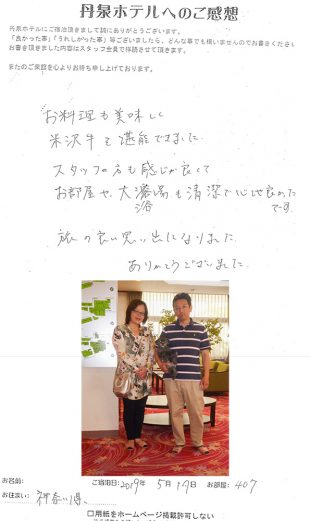 丹泉ホテルへのご感想
丹泉ホテルにご宿泊頂きまして誠にありがとうございます。
「良かった事」「うれしかった事」等ございましたら、どんな事でも構いませんのでお書きください
お書き頂きました内容はスタッフ全員で拝読させて頂きます。
またのご来館を心よりお待ち申し上げております。
お料理も美味しく
米沢牛を堪能できました
スタッフの方も感じが良くて
お部屋や、大浴場も清潔で心地良かった
です
旅の良い思い出になりました
ありがとうございました
お名前:
ご宿泊日:2019年 5月17日 お部屋:407
お住まい: 神奈川県
□用紙をホームページ掲載許可しない